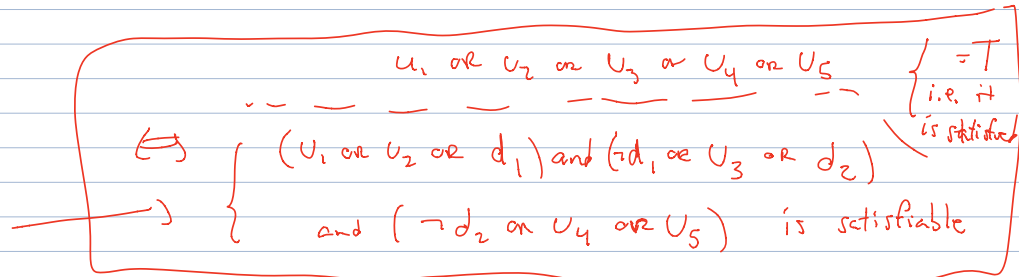 u₁ OR U₂ OR U₃ or U₄ OR U₅ { = T
i.e. it
is satisfied
⇔ { (U₁ OR U₂ OR d₁) and (¬d₁ OR U₃ OR d₂)
and (¬d₂ OR U₄ OR U₅) is satisfiable